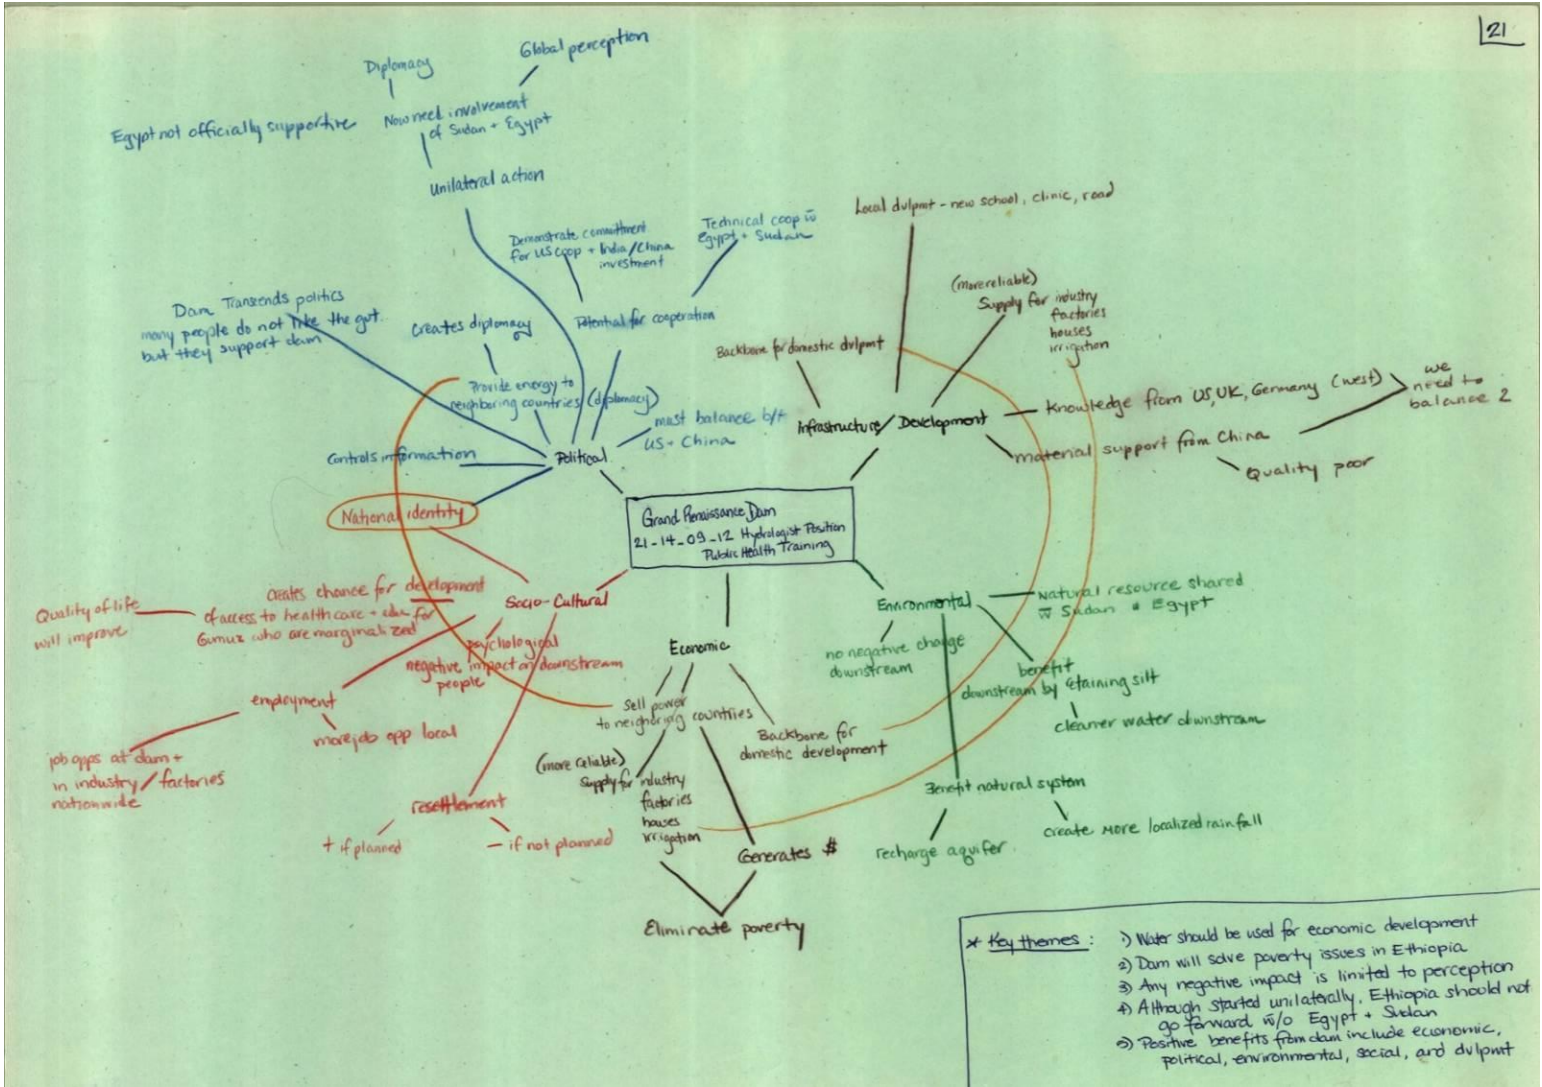 21
Global perception
Diplomacy
Now need involvement
of Sudan + Egypt
Egypt not officially supportive
Unilateral action
Demonstrate committment
for US coop + India/China
investment
Technical coop w̄
Egypt + Sudan
Potential for cooperation
Dam Transcends politics
many people do not like the gvt.
but they support dam
Creates diplomacy
Provide energy to
neighboring countries (diplomacy)
must balance b/t
US + China
Controls information
Political
National identity
Local dvlpmt - new school, clinic, road
(more reliable)
Supply for industry
factories
houses
irrigation
Backbone for domestic dvlpmt
Infrastructure/ Development
Knowledge from US, UK, Germany (west)
we
need to
balance 2
material support from China
Quality poor
Grand Renaissance Dam
21-14-09-12 Hydrologist Position
Public Health Training
Socio-Cultural
creates chance for development
of access to health care + edu for
Gumuz who are marginalized
Quality of life
will improve
psychological
negative impact on downstream
people
employment
more job opp local
job opps at dam +
in industry/factories
nationwide
resettlement
+ if planned
- if not planned
Economic
Sell power
to neighboring countries
Backbone for
domestic development
(more reliable)
Supply for industry
factories
houses
irrigation
Generates $
Eliminate poverty
Environmental
Natural resource shared
w̄ Sudan + Egypt
no negative change
downstream
benefit
downstream by retaining silt
cleaner water downstream
Benefit natural system
create more localized rainfall
recharge aquifer.
* Key themes :
1) Water should be used for economic development
2) Dam will solve poverty issues in Ethiopia
3) Any negative impact is limited to perception
4) Although started unilaterally, Ethiopia should not
go forward w̄/o Egypt + Sudan
5) Positive benefits from dam include economic,
political, environmental, social, and dvlpmt